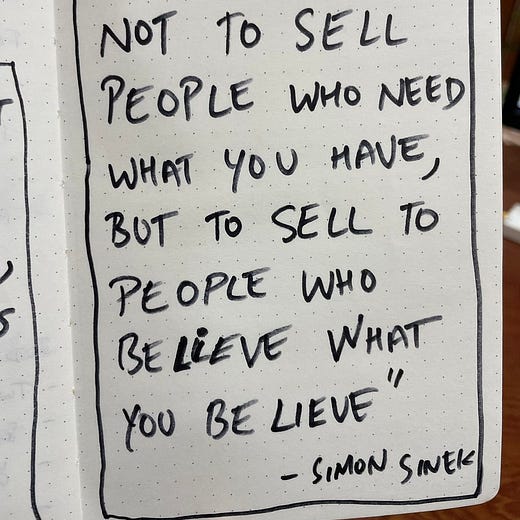 NOT TO SELL
PEOPLE WHO NEED
WHAT YOU HAVE,
BUT TO SELL TO
PEOPLE WHO
BELiEVE WHAT
YOU BELIEVE"
- SIMON SINEK